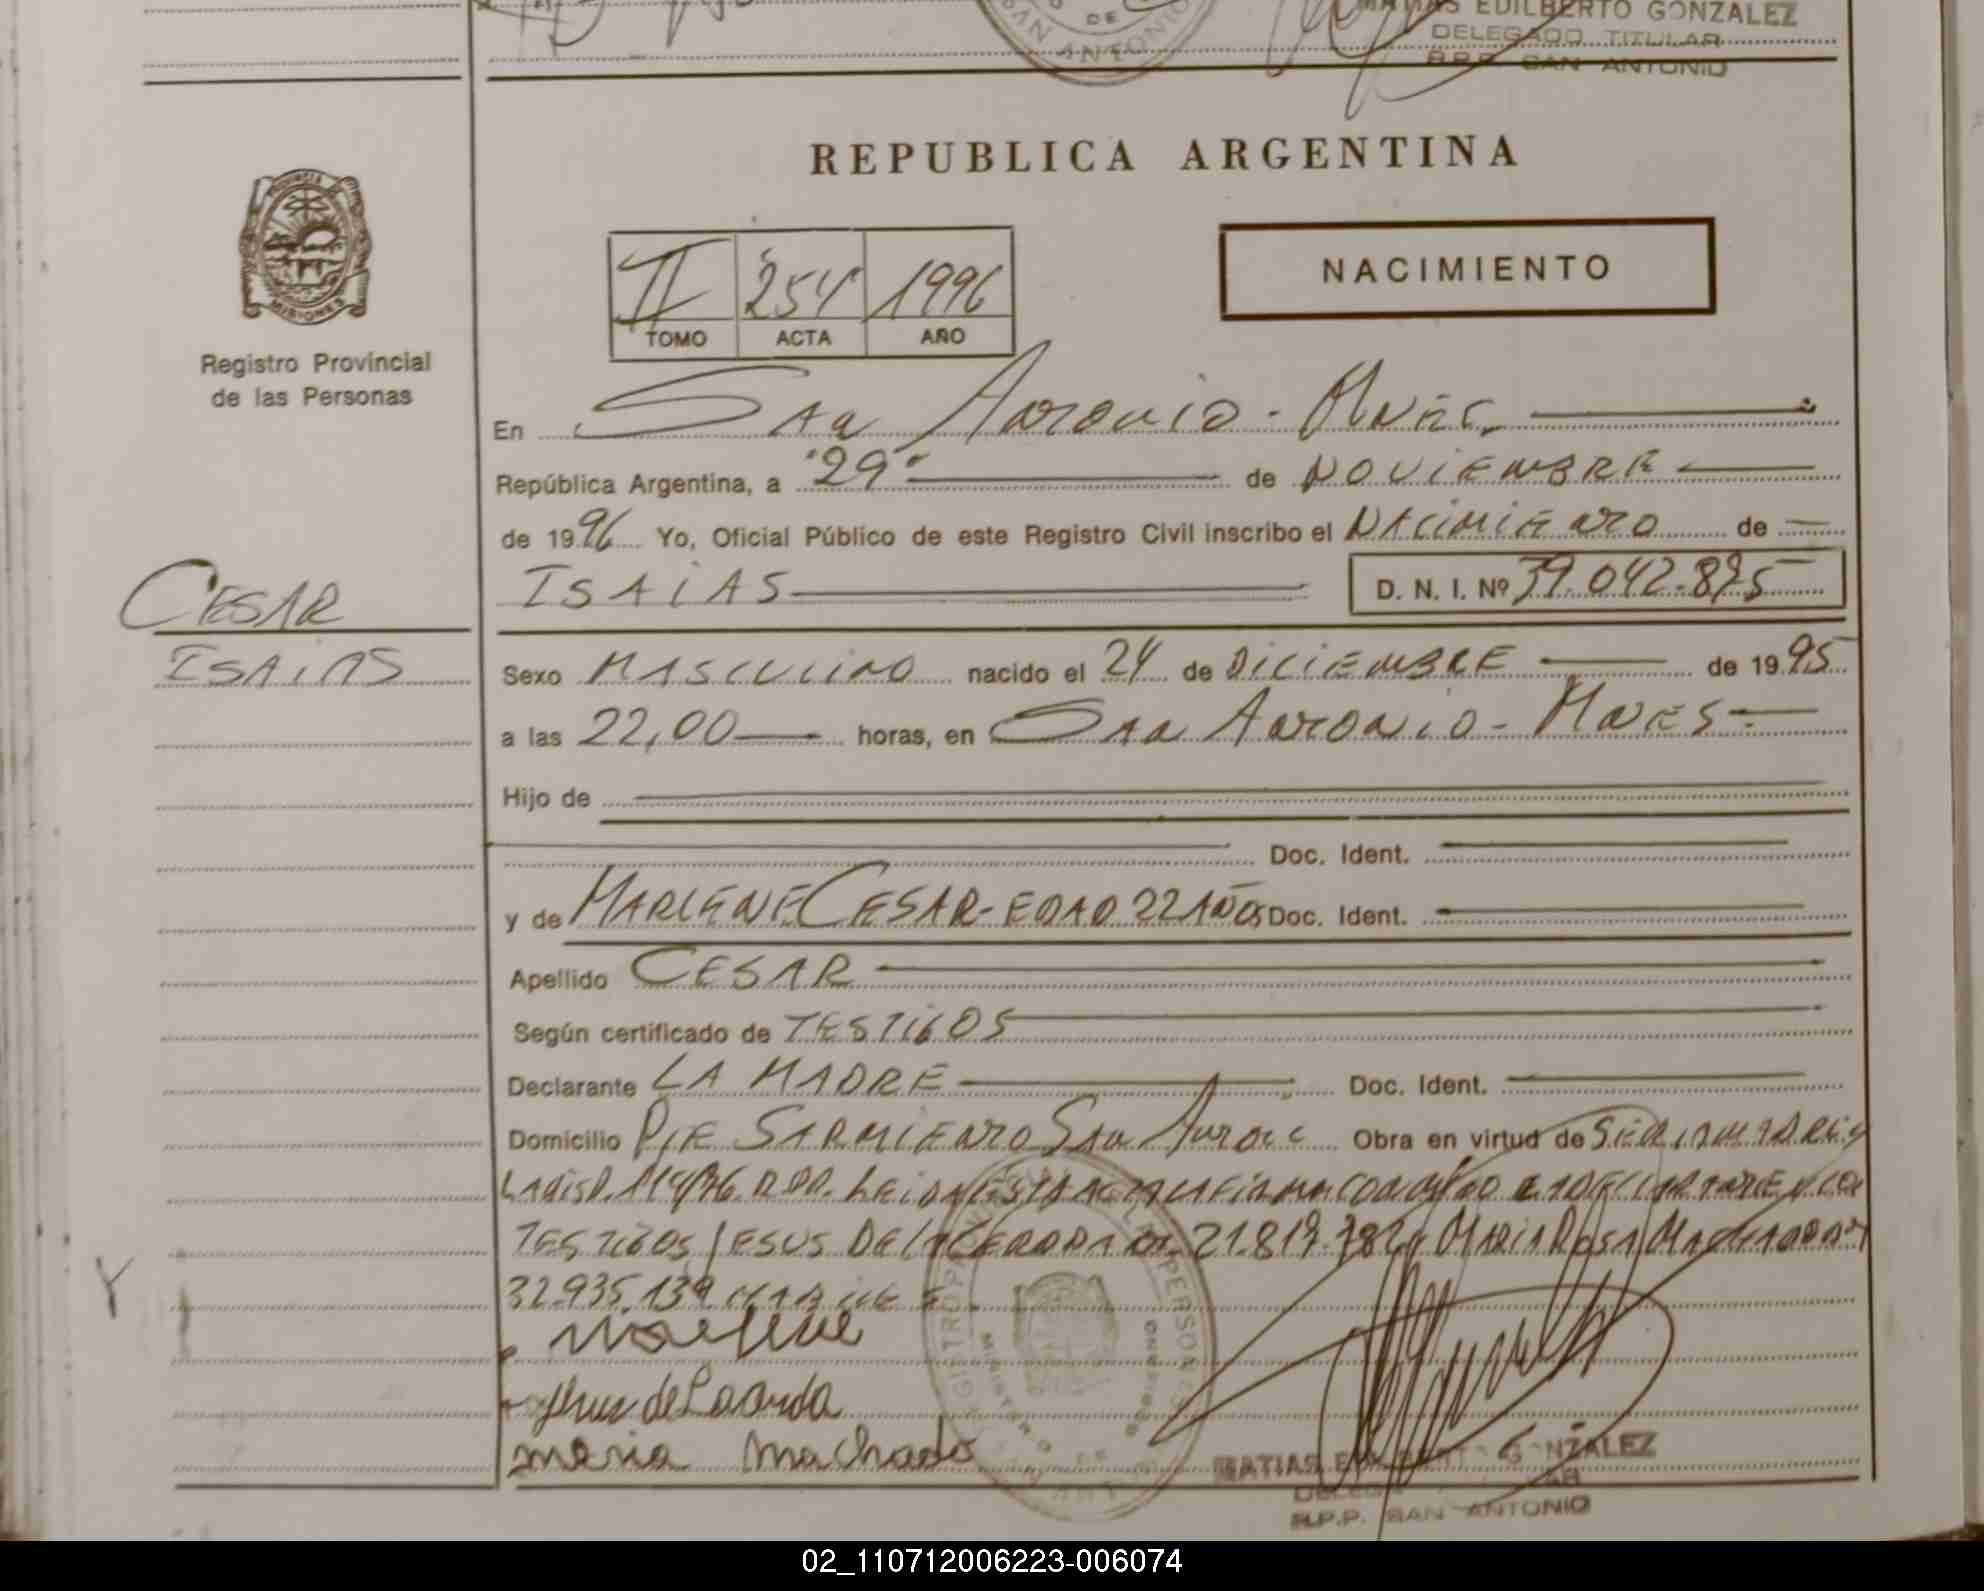 MATIAS EDILBERTO GONZALEZ
DELEGADO TITULAR
R.P.P. SAN ANTONIO
SAN ANTONIO
DE
REPUBLICA ARGENTINA
PROVINCIA DE
MISIONES
Registro Provincial
de las Personas
II 254 1996
TOMO ACTA AÑO
NACIMIENTO
En San Antonio - Mnes.
República Argentina, a "29" de NOVIEMBRE
de 1996 Yo, Oficial Público de este Registro Civil inscribo el NACIMIENTO de
ISAIAS D. N. I. Nº 39.042.895
CESAR
ISAIAS
Sexo MASCULINO nacido el 24 de DICIEMBRE de 1995
a las 22,00 horas, en San Antonio - Mnes
Hijo de
Doc. Ident.
y de MARLENE CESAR - EDAD 22 AÑOS Doc. Ident.
Apellido CESAR
Según certificado de TESTIGOS
Declarante LA MADRE Doc. Ident.
Domicilio PJE SARMIENTO San Antonio Obra en virtud de
LEIDA ESTA ACTA LA FIRMA CONMIGO LA DECLARANTE Y LOS
TESTIGOS JESUS DE LA CERDA 21.817.782 y MARIA ROSA MACHADO
32.935.139
Y
Marlene
Jesus de La Cerda
maria machado
MATIAS EDILBERTO GONZALEZ
R.P.P. SAN ANTONIO
02_110712006223-006074